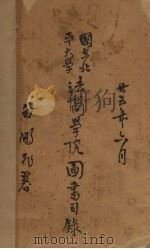 廿五年六月
國立北
平大學
法商學院圖書目錄
狗